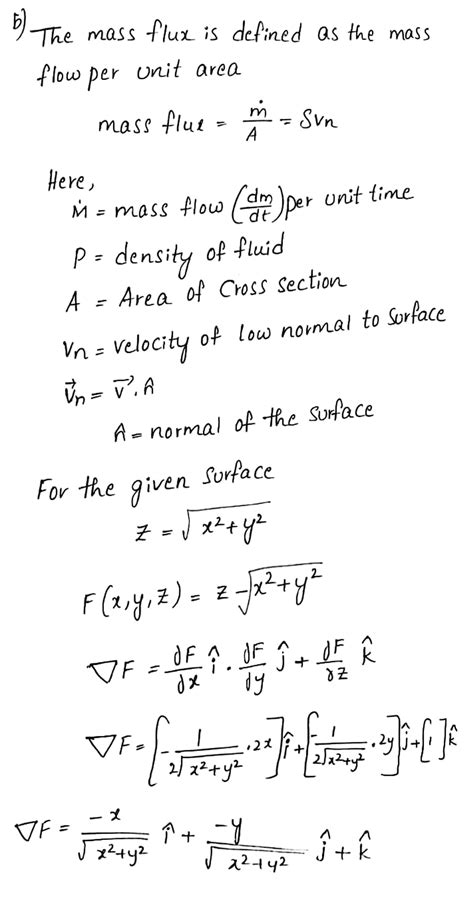 b) The mass flux is defined as the mass
flow per unit area
mass flux = ṁ/A = Svn
Here,
Ṁ = mass flow (dm/dt) per unit time
P = density of fluid
A = Area of Cross section
Vn = velocity of low normal to surface
V⃗n = V⃗ . A
A = normal of the surface
For the given surface
Z = √x²+y²
F(x,y,z) = z - √x²+y²
∇F = ∂F/∂x î . ∂F/∂y ĵ + ∂F/∂z k̂
∇F = [- 1/2√x²+y² . 2x] î + [- 1/2√x²+y² . 2y] ĵ + [1] k̂
∇F = -x/√x²+y² î + -y/√x²+y² ĵ + k̂